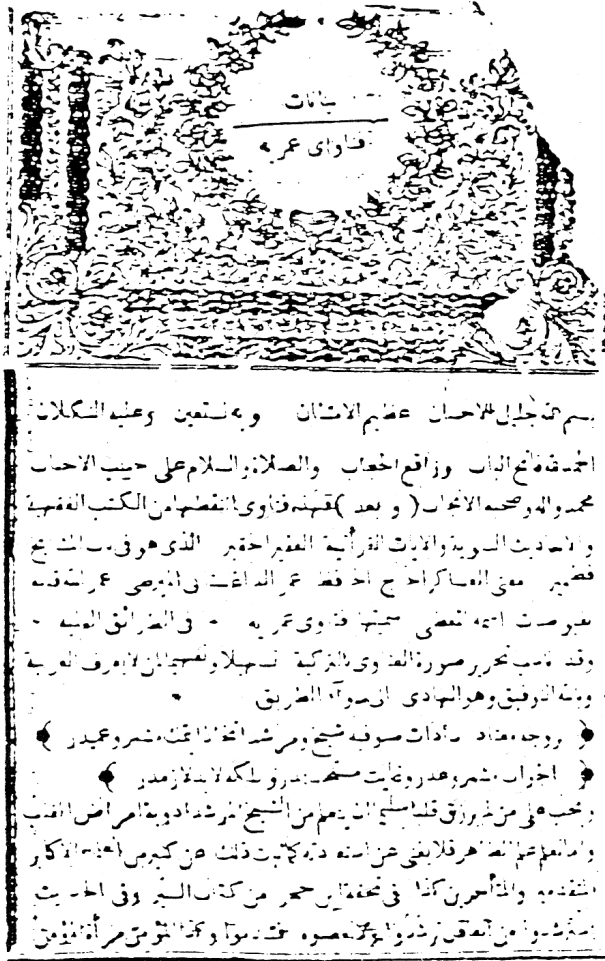 بيانات
فتاواى عمريه
بسم الله جليل الاحسان عظيم الامتنان وبه نستعين وعليه التكلان
الحمد لله فاتح الباب ورافع الحجاب والصلاة والسلام على حبيب الاحباب
محمد واله وصحبه الانجاب (و بعد) فهذه فتاوى التقطها من الكتب الفقهية
والاحاديث النبوية والايات القرآنية الفقير الحقير الذى هو فى باب المشايخ
قطمير مفتى العساكر الحاج الحافظ عمر الداغستانى
سميتها فتاوى عمريه فى الطرائق العليه
وقد ناسب تحرير صورة الفتاوى بالتركية تسهيلا وتفهيما لمن لا يعرف العربية
وبالله التوفيق وهو الهادى الى سواء الطريق
وجه معتاد سادات صوفيه شيخ ومرشد اتخاذ ايتمك مشروعميدر
الجواب مشروعدر وغايت مستحبدر وبلكه لابد لازمدر
ويجب على من لم يرزق قلبا سليما ان يتعلم من الشيخ المرشد ادوية امراض القلب
واما تعلم علم الظاهر فلا يغنى عن كما ثبت ذلك عن كثير من العلماء الاكابر
المتقدمين والمتأخرين كذا فى تحفة ابن حجر من كتاب السير وفى الحديث
استرشدوا من العاقل ترشدوا ولا تعصوه فتندموا وكذا المؤمن مرآة المؤمن